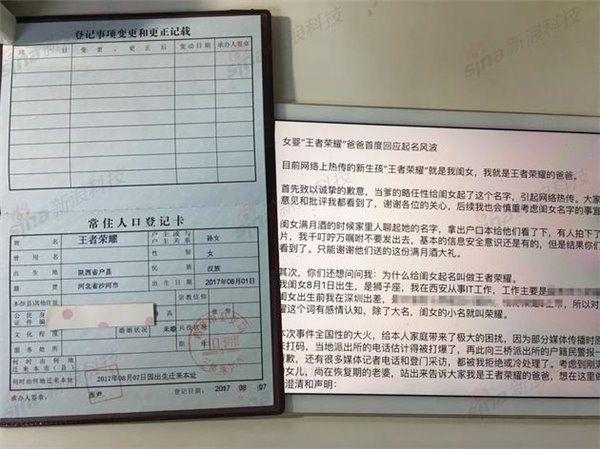 登记事项变更和更正记载
项 目 变更、更正后 变动日期 承办人签章
常住人口登记卡
姓 名 王者荣耀 户主或与户主关系 孙女
曾用名 性别 女
出生地 陕西省户县 民族 汉族
籍贯 河北省沙河市 出生日期 2017年08月01日
本市(县)其他住址 宗教信仰
公民身份证件编号
文化程度 婚姻状况 未婚 兵役状况
服务处所
何时由何地迁来本市(县)
何时由何地迁来本址 2017年08月07日因出生迁来本址
承办人签章 登记日期: 2017 08 07
女婴“王者荣耀”爸爸首度回应起名风波
目前网络上热传的新生孩“王者荣耀”就是我闺女，我就是王者荣耀的爸爸，
首先致以诚挚的歉意，当爹的略任性给闺女起了这个名字，引起网络热传。大家
意见和批评我都看到了，谢谢各位的关心，后续我也会慎重考虑闺女名字的事宜
闺女满月酒的时候家里人聊起她的名字，拿出户口本给他们看了下，有人拍下了
片，我千叮咛万嘱咐不要发出去，基本的信息安全意识还是有的，但是结果你们
看到了。只能谢谢他们送的这份满月酒大礼。
其次，你们还想问我：为什么给闺女起名叫做王者荣耀。
我闺女8月1日出生，是狮子座，我在西安从事IT工作，工作主要是
闺女出生前我在深圳出差，
耀这个词有感情认知，除了大名，闺女的小名就叫荣耀。
本次事件全国性的大火，给本人家庭带来了极大的困扰，因为部分媒体传播时
打码，当地派出所的电话估计得被打爆了，再此向三桥派出所的户籍民警报一
歉，还有很多媒体记者电话和登门采访，都被我拒绝或冷处理了。考虑到刚满
女儿，尚在恢复期的老婆，站出来告诉大家我是王者荣耀的爸爸，想在这里做
澄清和声明：
sina新浪科技
sina新浪科技